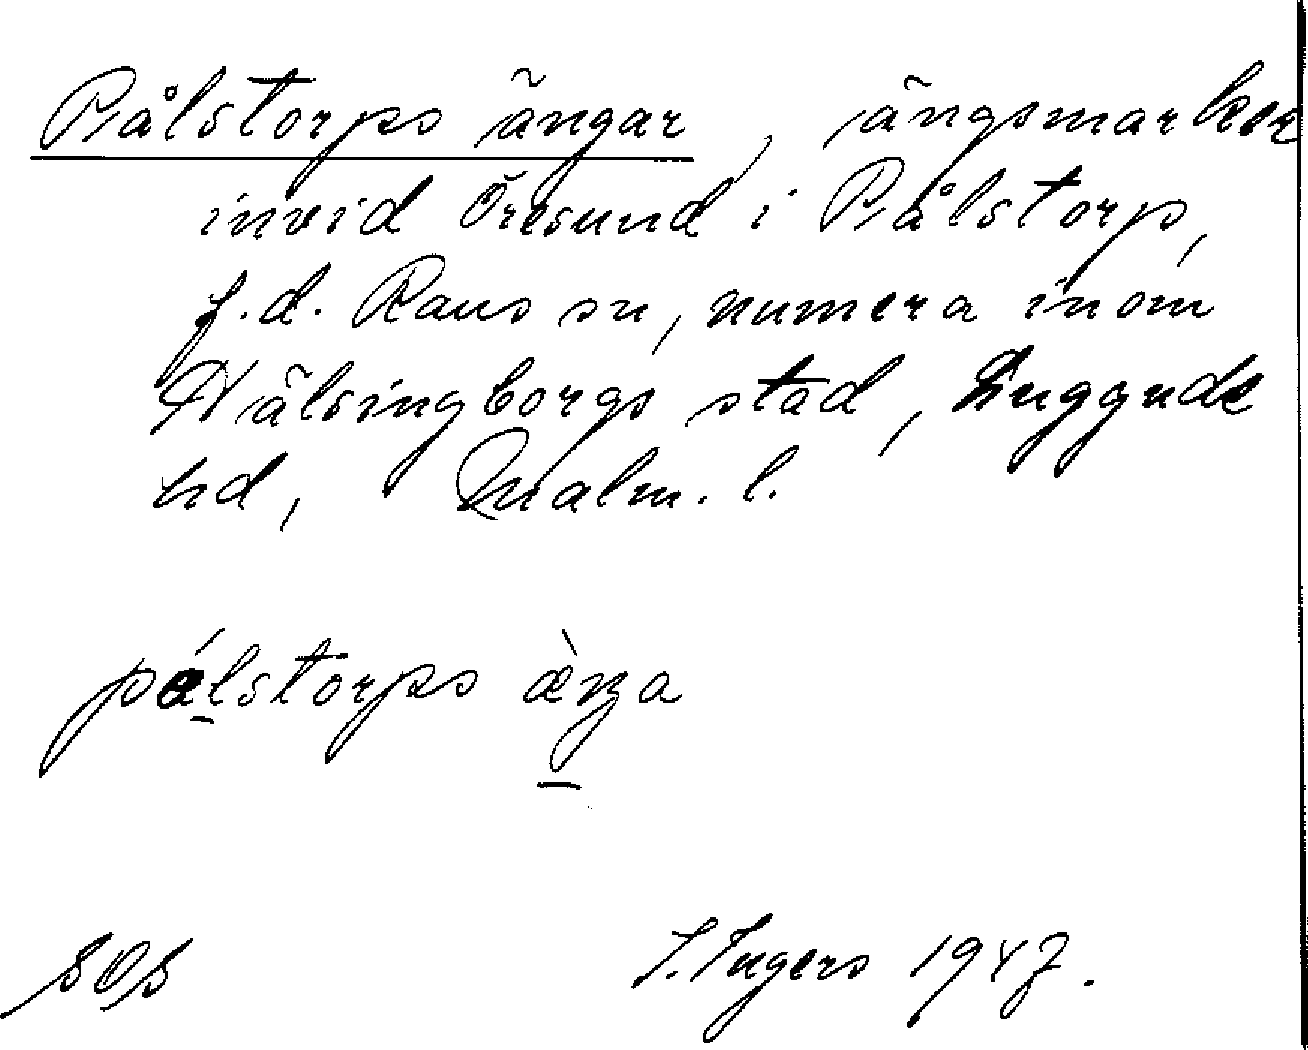 Pålstorps ängar, ängsmarker
invid Öresund i Pålstorp,
f.d. Raus sn, numera inom
Hälsingborgs stad, Luggude
hd, Malm. l.
pálstorps æ̀ŋa
sOs I. Ingers 1947.